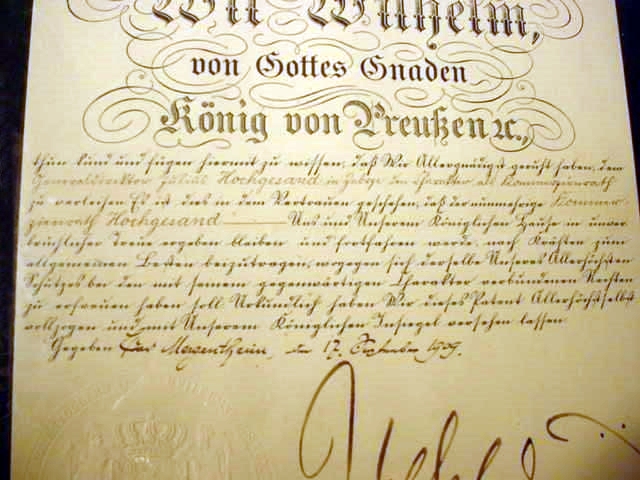 Wir Wilhelm,
von Gottes Gnaden
König von Preußen ꝛc.,
thun kund und fügen hiermit zu wissen, daß Wir Allergnädigst geruht haben, dem
Generaldirektor Julius Hochgesand in Zabrze den Charakter als Kommerzienrath
zu verleihen. Es ist dies in dem Vertrauen geschehen, daß der nunmehrige Kommer-
zienrath Hochgesand Uns und Unserem Königlichen Hause in unver-
brüchlicher Treue ergeben bleiben und fortfahren werde, nach Kräften zum
allgemeinen Besten beizutragen, wogegen sich derselbe Unseres Allerhöchsten
Schutzes bei den mit seinem gegenwärtigen Charakter verbundenen Rechten
zu erfreuen haben soll. Urkundlich haben Wir dieses Patent Allerhöchstselbst
vollzogen und mit Unserem Königlichen Insiegel versehen lassen.
Gegeben den 17. September 1909.